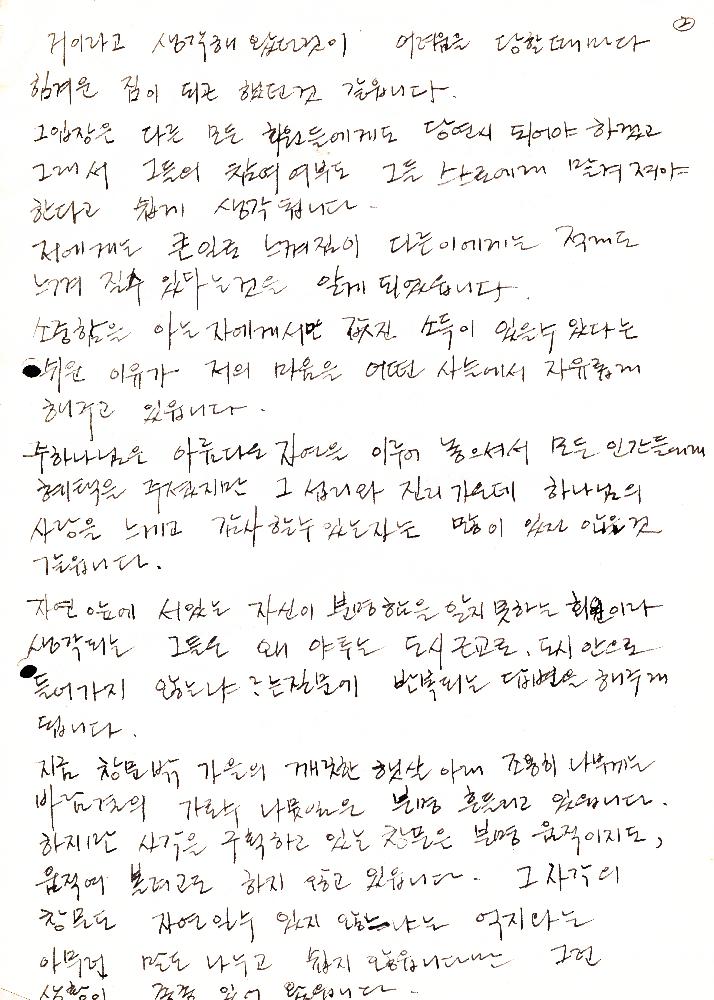 ②
거이라고 생각해 왔던것이 어려움을 당할때마다
힘겨운 짐이 되곤 했던것 같읍니다.
그입장은 다른 모든 회원들에게도 당연시 되어야 하겠고
그래서 그들의 참여여부도 그들 스스로에게 맡겨져야
한다고 쉽게 생각됩니다.
저에게는 큰일로 느껴짐이 다른이에게는 적게도
느껴질수 있다는것을 알게 되었읍니다.
소중함을 아는자에게서만 값진 소득이 있을수 있다는
쉬운 이유가 저의 마음을 어떤 사슬에서 자유롭게
해주고 있읍니다.
주하나님은 아름다운 자연을 이루어 놓으셔서 모든 인간들에게
혜택을 주셨지만 그 섭리와 진리가운데 하나님의
사랑을 느끼고 감사할수 있는자는 많이 있지 않을것
같읍니다.
자연앞에 서있는 자신이 분명함을 알지못하는 회원이라
생각되는 그들은 왜 야투는 도시근교로, 도시안으로
들어가지 않느냐 는질문에 반복되는 답변을 해주게
됩니다.
지금 창문밖 가을의 깨끗한 햇살 아래 조용히 나부끼는
바람결의 가로수 나뭇잎은 분명 흔들리고 있읍니다.
하지만 사각을 구획하고 있는 창문은 분명 움직이지도,
움직여 볼려고도 하지 않고 있읍니다. 그 사각의
창문도 자연일수 있지 않느냐는 억지와는
아무런 말도 나누고 싶지 않읍니다만 그런
생활이 종종 있어 왔읍니다.